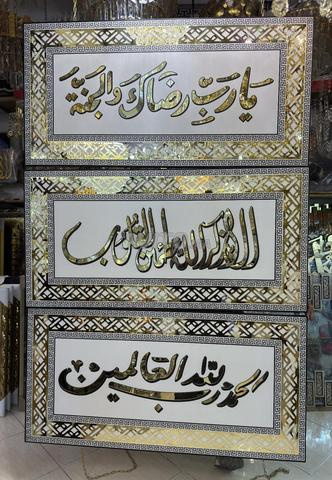 يا رب رضاك والجنة
ألا بذكر الله تطمئن القلوب
الحمد لله رب العالمين